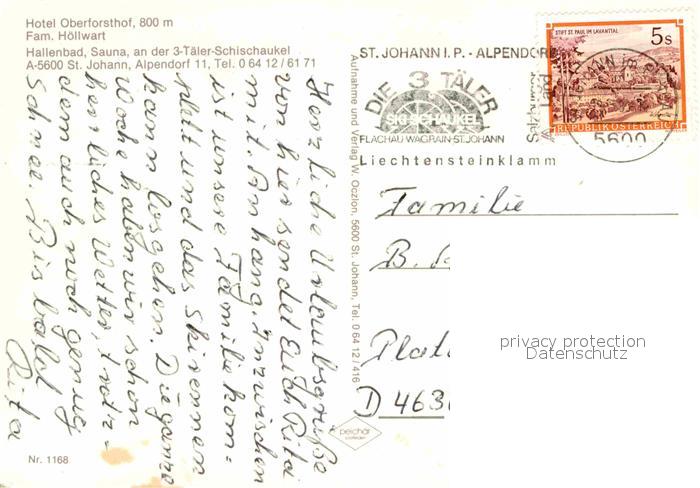 Hotel Oberforsthof, 800 m
Fam. Höllwart
Hallenbad, Sauna, an der 3-Täler-Schischaukel
A-5600 St. Johann, Alpendorf 11, Tel. 0 64 12 / 61 71
Herzliche Urlaubsgrüße
von hier sendet Euch Rita
mit Anhang. Inzwischen
ist unsere Familie kom=
plett und das Skirennen
kann losgehen. Die ganze
Woche haben wir schon
herrliches Wetter, trotz=
dem auch noch genug
Schnee. Bis bald
Rita
Nr. 1168
Aufnahme und Verlag W. Oczlon, 5600 St. Johann, Tel. 0 64 12 / 416
peichär
ST. JOHANN I. P. - ALPENDORF
DIE 3 TÄLER
SKISCHAUKEL
FLACHAU WAGRAIN-ST.JOHANN
Liechtensteinklamm
STIFT ST. PAUL IM LAVANTTAL
5 S
REPUBLIK ÖSTERREICH
5600
Familie
B.
Plat
D 463
privacy protection
Datenschutz